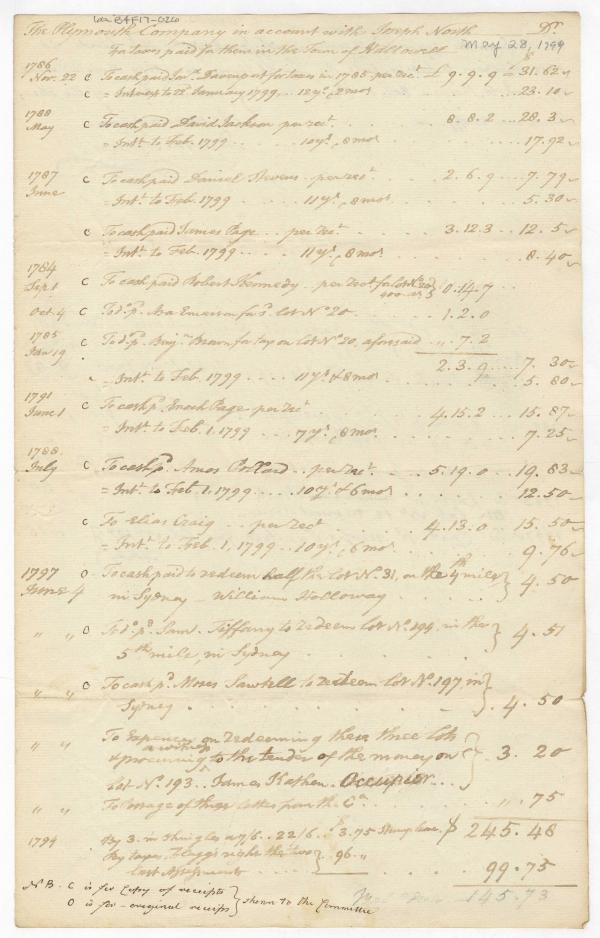 The Plymouth Company in account with Joseph North Dr.
for taxes paid for them in the Town of Hallowell May 28, 1799
1786
Nov. 22 c To cash paid Davenport for taxes in 1785 per rect. £ 9.9.9 $ 31.62
c = Interest to 22 January 1799 .. 12 ys. 2 mos 23.10
1788
May c To cash paid David Jackson per rect. 8.8.2 .. 28.3
= Intt. to Feb. 1799 .. 10 ys. 8 mos 17.92
1787
June c To cash paid Daniel Stevens .. per rect. 2.6.9 .. 7.79
= Intt. to Feb. 1799 .. 11 ys. 8 mos 5.30
c To cash paid James Page .. per rect. 3.12.3 .. 12.5
= Intt. to Feb. 1799 .. 11 ys. 8 mos 8.40
1784
Sept. 1 c To cash paid Robert Kennedy .. per rect. for Lot No. 20 } 0.14.7
Oct. 4 c To do. pd. Asa Emerson for do. lot No. 20 1.2.0
1785
Jan 19 c To do. pd. Benjn. Brown for tax on Lot No. 20, aforesaid " .7.2
2.3.9 .. 7.30
= Intt. to Feb. 1799 .... 11 ys. & 8 mos 5.80
1791
June 1 c To cash pd. Enoch Page per rect. 4.15.2 .. 15.87
= Intt. to Feb. 1. 1799 ... 7 ys. 8 mos. 7.25
1788
July c To cash pd. Amos Pollard .. per rect. 5.19.0 .. 19.83
= Intt. to Feb. 1. 1799 .... 10 ys. & 6 mos 12.50
c To Elias Craig .. per rect 4.13.0 .. 15.50
= Intt. to Feb. 1, 1799 .. 10 ys. 6 mos 9.76
1797
June 4 o To cash paid to redeem half the lot No. 31, on the 4th mile } 4.50
in Sydney — William Holloway
" " o To do. pd. Saml. Tiffany to redeem Lot No. 194, in the } 4.51
5th mile, in Sydney
" " c To cash pd. Moses Sawtell to redeem Lot No. 197 in } 4.50
Sydney
" " To Expences on redeeming these three Lots
& procuring a witness to the tender of the money on } 3.20
Lot No. 193 .. James Kathen Occupier ..
" " To Postage of three letters from the Co. " .75
1794 By 3. m Shingles a 7/6 .. 22/6 $ 3.75 $ 245.48
By taxes right the two } 96. "
last Assessments 99.75
145.73
N B. c is for Copy of receipts }
o is for — original receipts } shown to the Committee